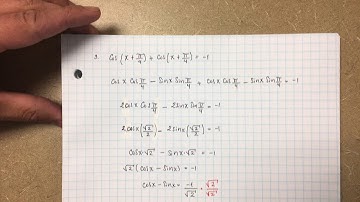 3. Cos(x + π/4) + cos(x + π/4) = -1
cosx cos π/4 - sinx sin π/4 + cosx cos π/4 - sinx sin π/4 = -1
2cosx cos π/4 - 2sinx sin π/4 = -1
2cosx (√2/2) - 2sinx (√2/2) = -1
cosx·√2 - sinx·√2 = -1
√2 (cosx - sinx) = -1
cosx - sinx = -1/√2 · √2/√2